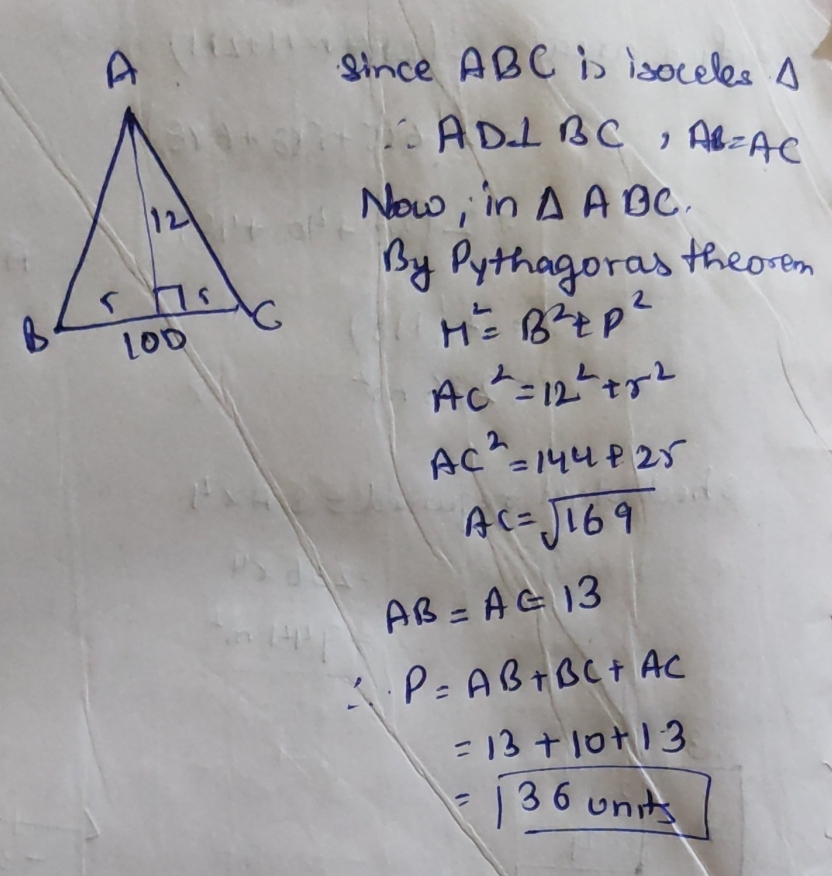 A
12
5 5
B C
10D
Since ABC is isoceles Δ
∴ AD⊥ BC , AB=AC
Now, in Δ ADC.
By Pythagoras theorem
H²= B²+P²
AC²=12²+5²
AC²=144+25
AC=√169
AB = AC= 13
∴ P= AB+BC+ AC
= 13 +10+13
= 36 units